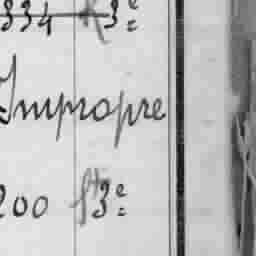 334 R 3e
Impropre
200 ft 3e